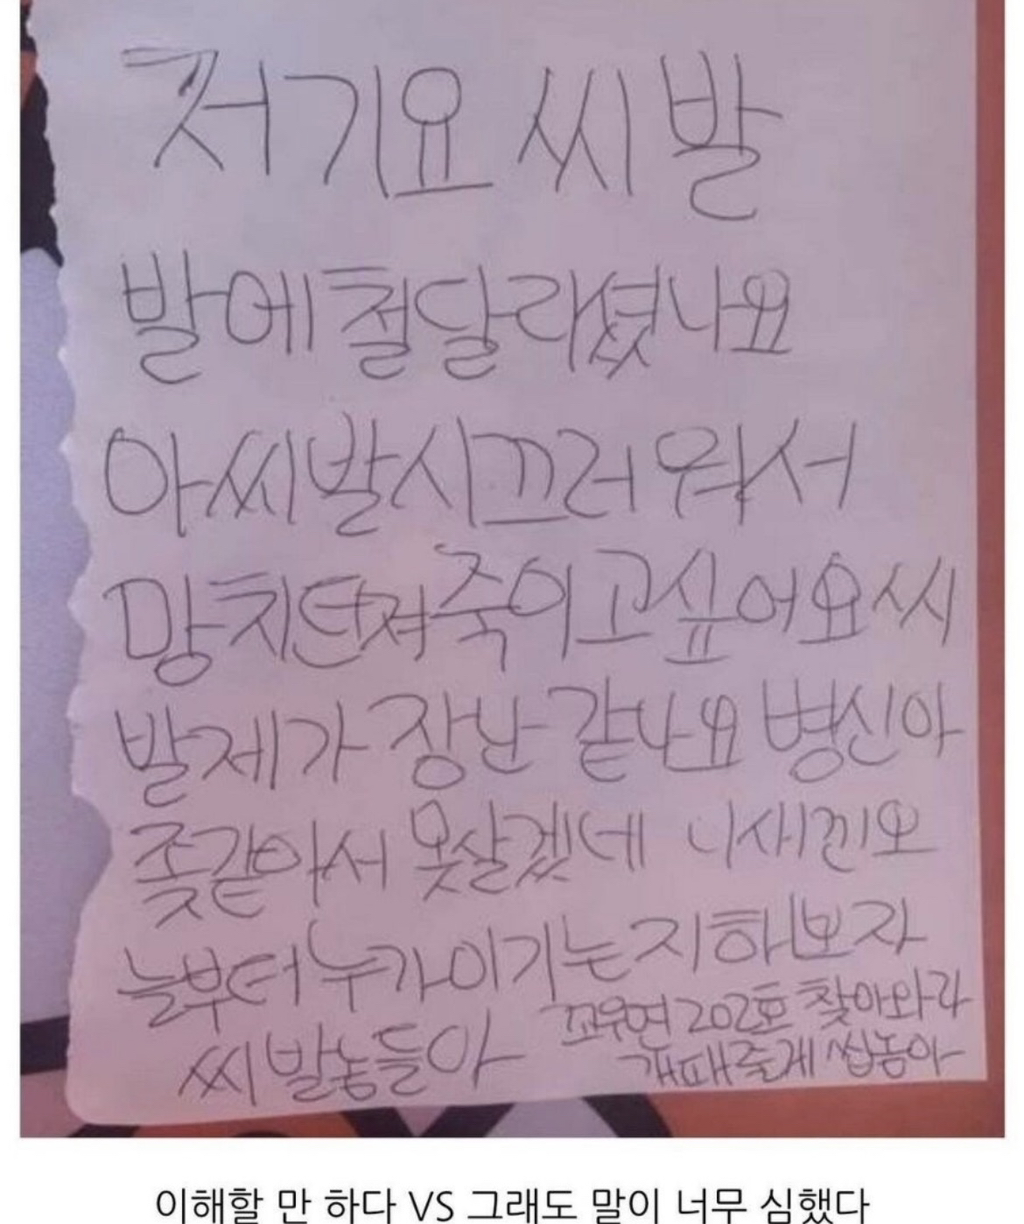 저기요 씨발
발에 철달라셨나요
아씨발시끄러워서
망치던져죽이고싶어요씨
발제가 장난 같나요 병신아
좆같아서 못살겠네 니새끼오
늘부터 누가이기는지 해보자
씨발놈들아
꼬우면 202호 찾아와라
개패줄게 씹놈아
이해할 만 하다 VS 그래도 말이 너무 심했다